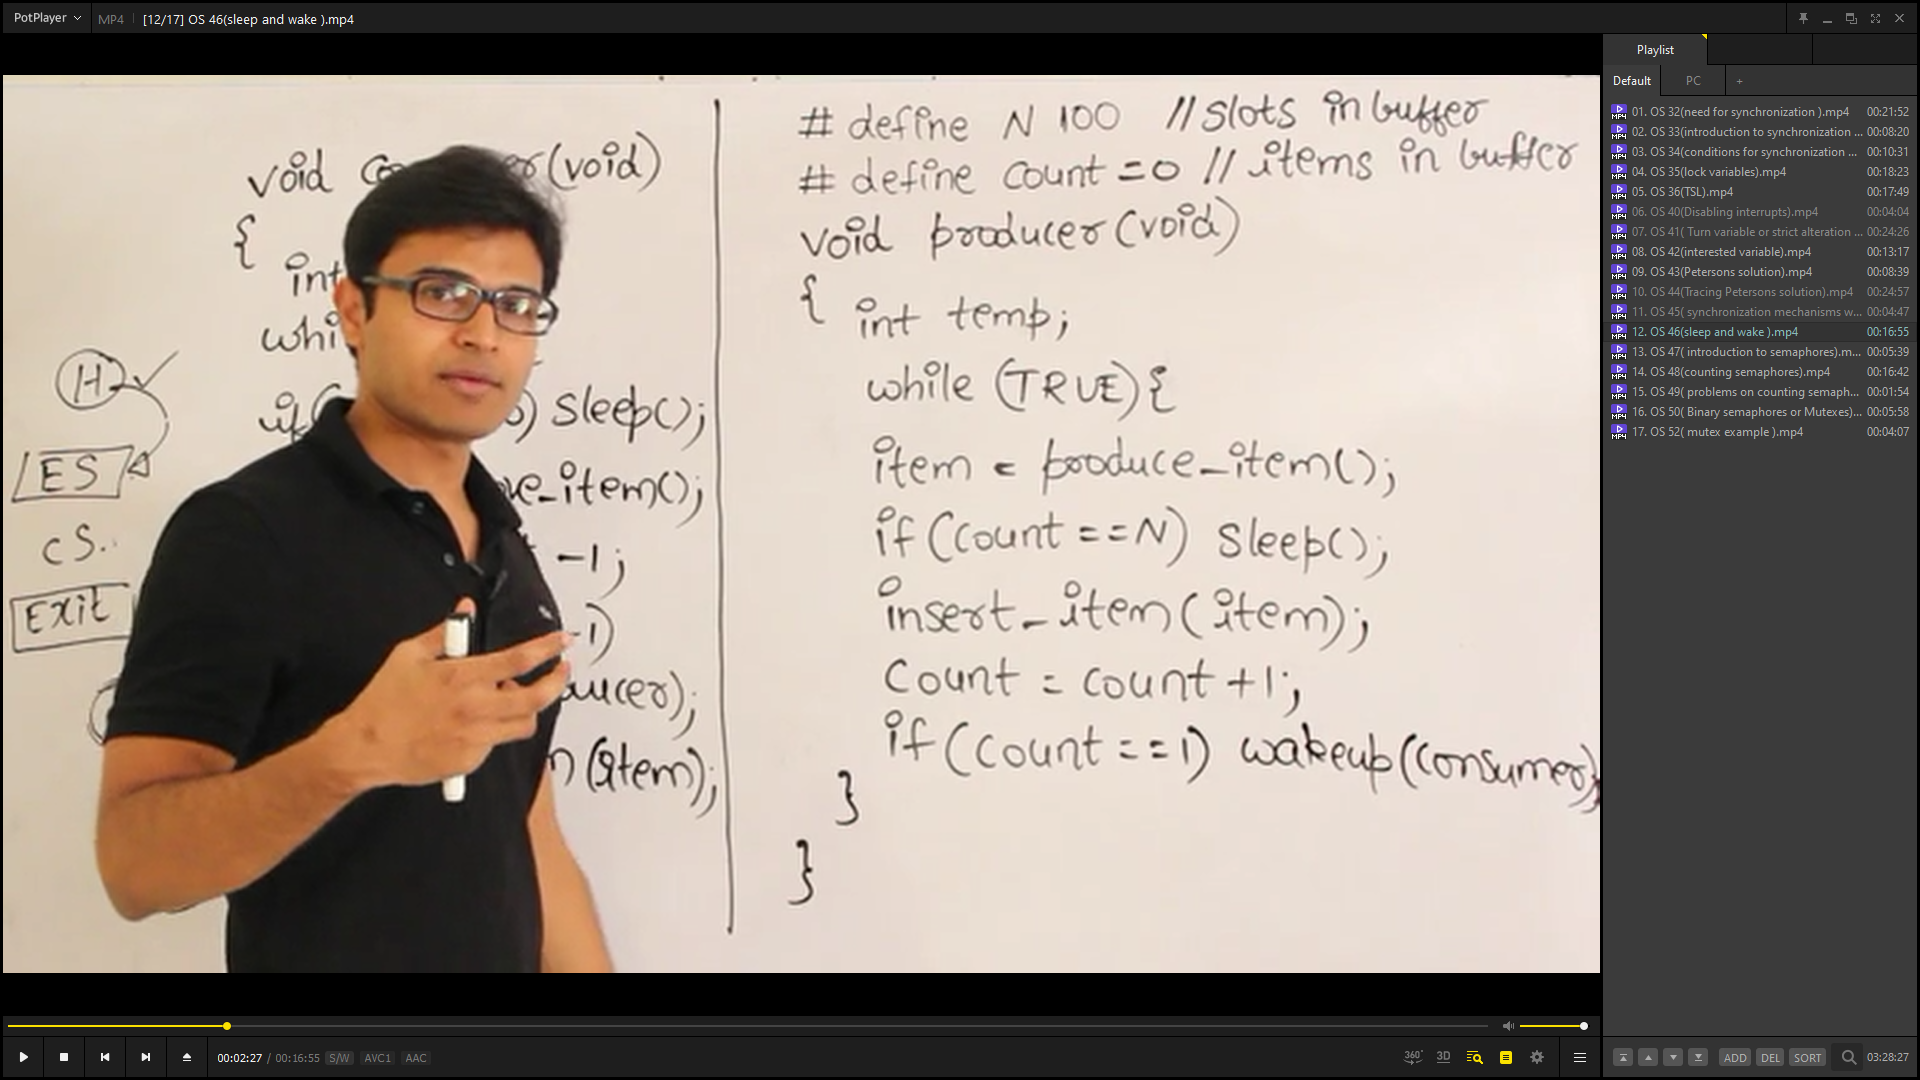 PotPlayer
MP4
[12/17] OS 46(sleep and wake ).mp4
void (void)
{
int
H
if( ) Sleep();
ES
CS.
-1;
Exit
(item);
# define N 100 // slots in buffer
# define count = 0 // items in buffer
void producer(void)
{ int temp;
while (TRUE){
item = produce_item();
if(count == N) sleep();
insert_item(item);
Count = count +1;
if(count ==1) wakeup(consumer);
}
}
Playlist
Default PC +
01. OS 32(need for synchronization ).mp4 00:21:52
02. OS 33(introduction to synchronization ... 00:08:20
03. OS 34(conditions for synchronization ... 00:10:31
04. OS 35(lock variables).mp4 00:18:23
05. OS 36(TSL).mp4 00:17:49
06. OS 40(Disabling interrupts).mp4 00:04:04
07. OS 41( Turn variable or strict alteration ... 00:24:26
08. OS 42(interested variable).mp4 00:13:17
09. OS 43(Petersons solution).mp4 00:08:39
10. OS 44(Tracing Petersons solution).mp4 00:24:57
11. OS 45( synchronization mechanisms w... 00:04:47
12. OS 46(sleep and wake ).mp4 00:16:55
13. OS 47( introduction to semaphores).m... 00:05:39
14. OS 48(counting semaphores).mp4 00:16:42
15. OS 49( problems on counting semaph... 00:01:54
16. OS 50( Binary semaphores or Mutexes)... 00:05:58
17. OS 52( mutex example ).mp4 00:04:07
00:02:27 / 00:16:55 S/W AVC1 AAC
360° 3D
ADD DEL SORT 03:28:27